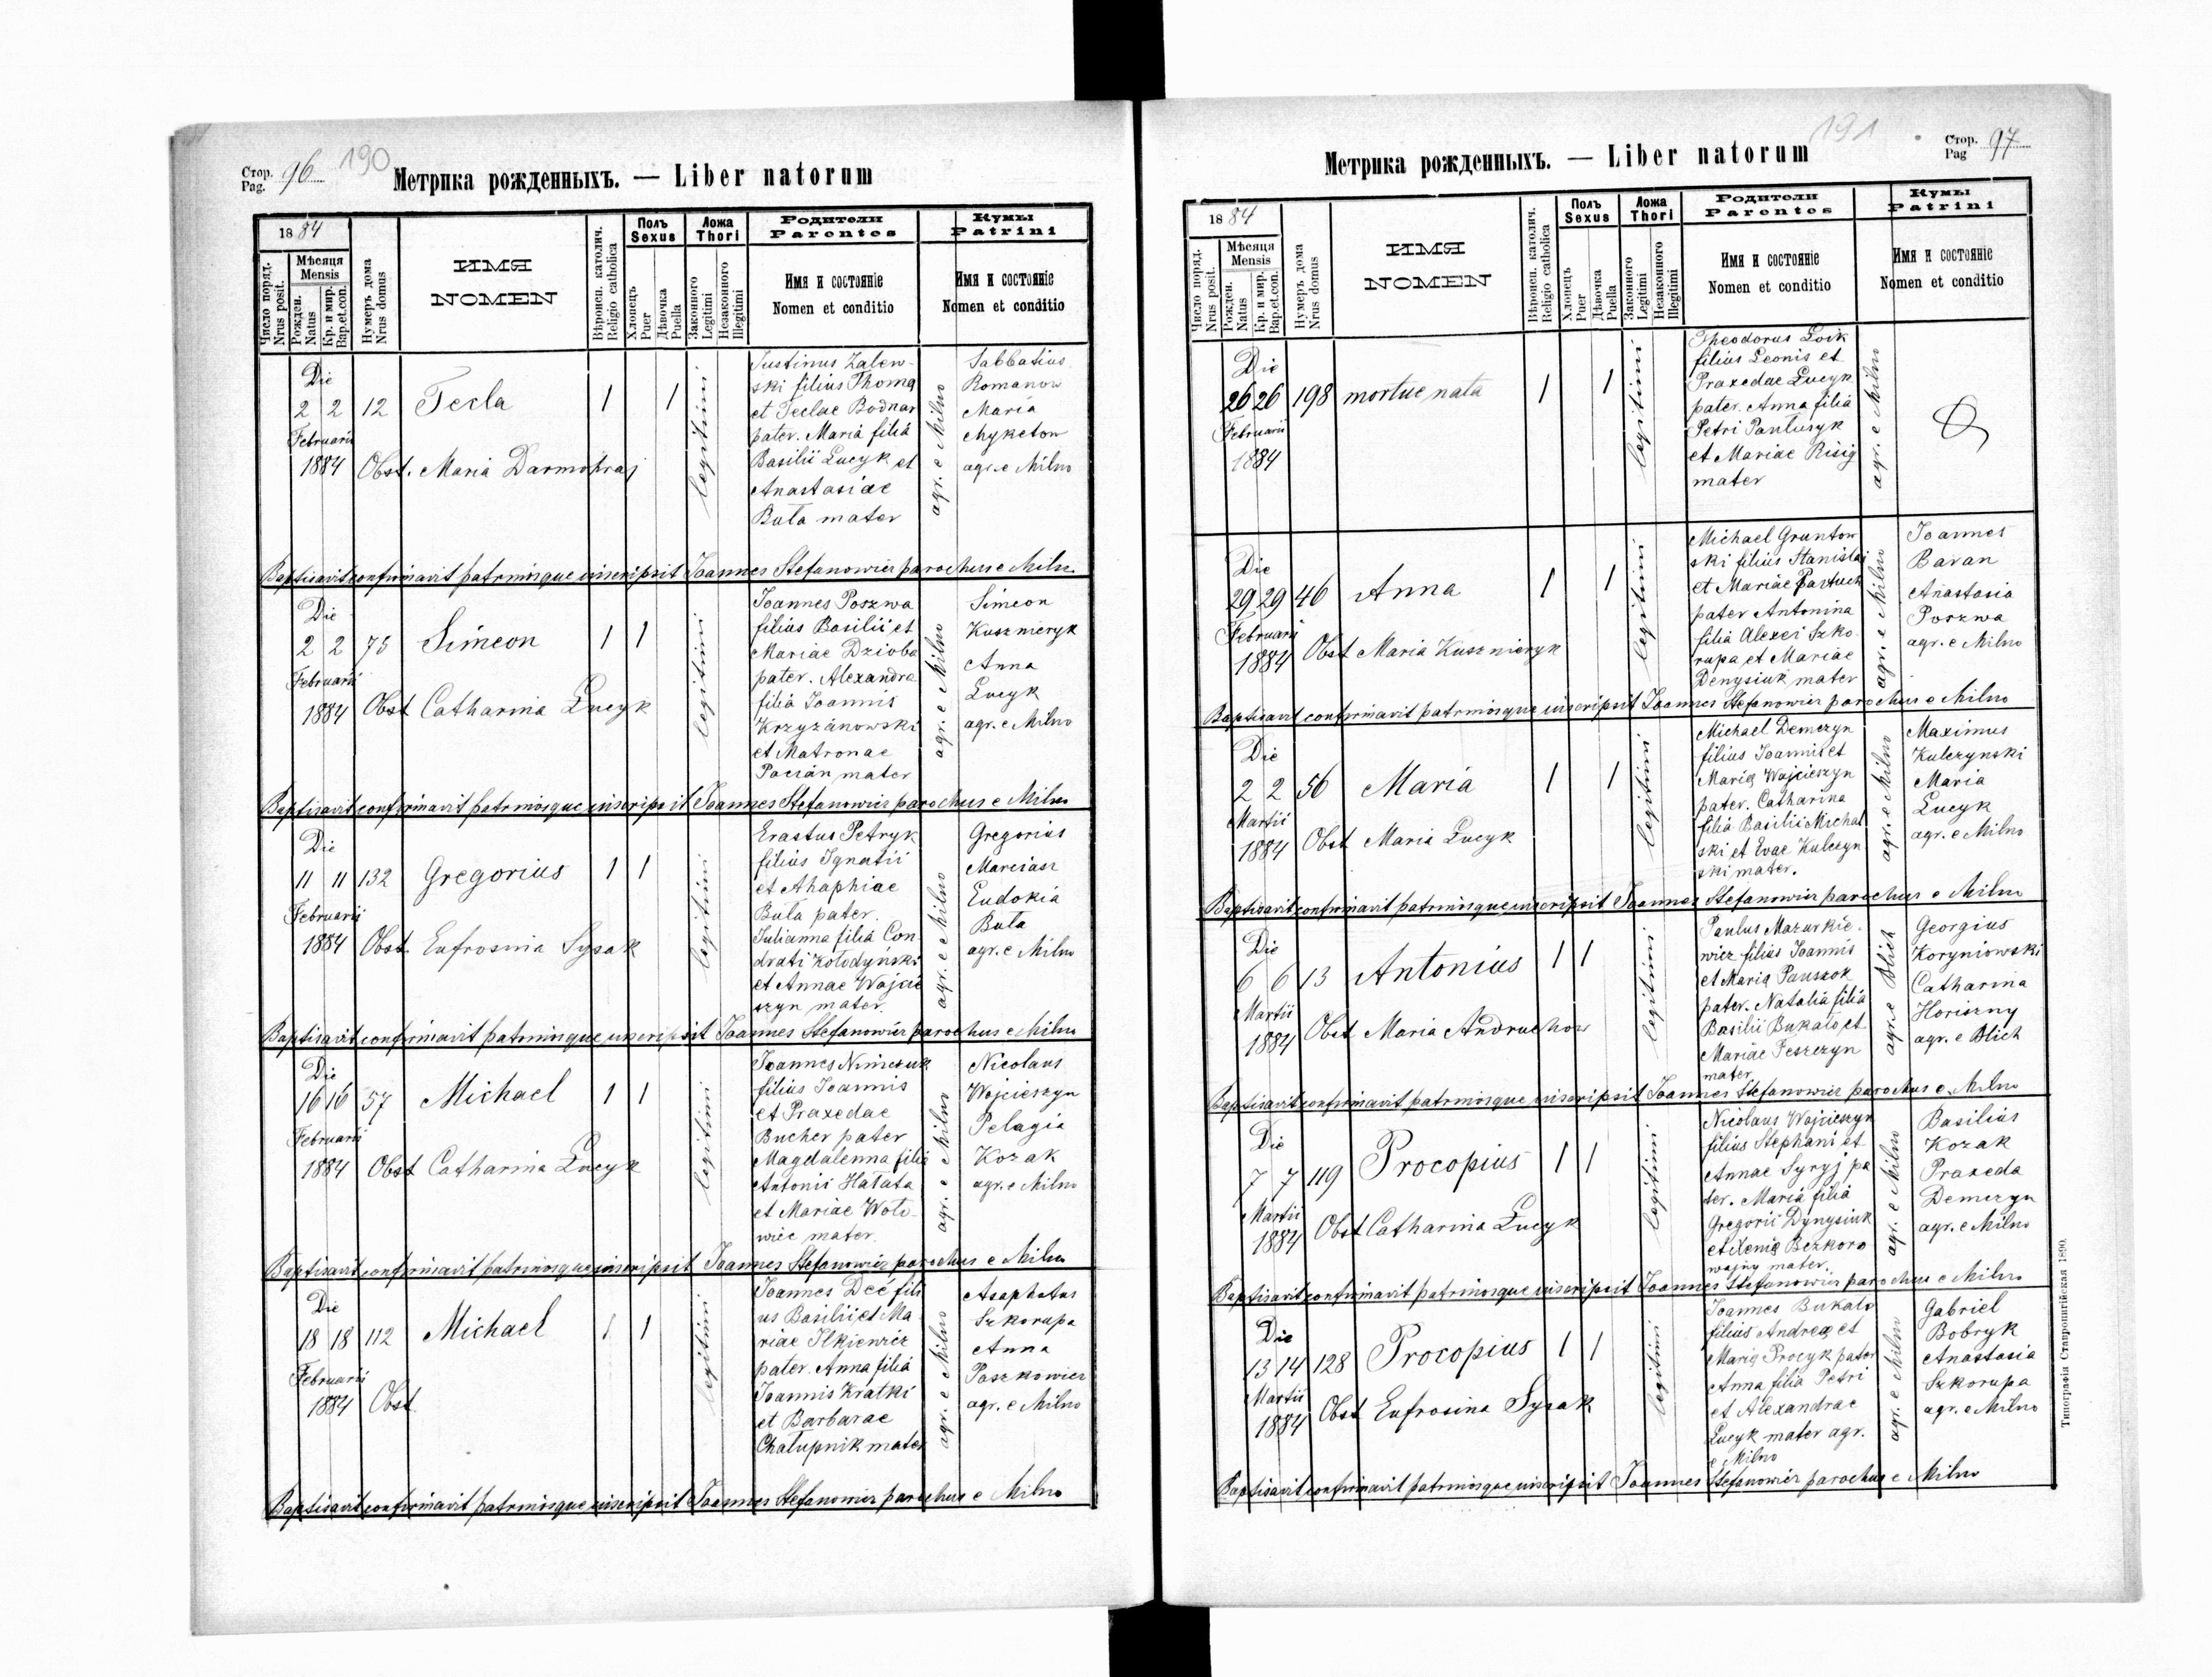 Стор. Pag. 96 190
Метрика рожденныхъ. — Liber natorum
1884
Число поряд. Nrus posit.
Мѣсяця Mensis
Рожден. Natus
Кр. и мир. Bap.et.con.
Нумеръ дома Nrus domus
ИМЯ NOMEN
Вѣроисп. католич. Religio catholica
Полъ Sexus
Хлопецъ Puer
Дѣвочка Puella
Ложа Thori
Законного Legitimi
Незаконного Illegitimi
Родители Parentes
Имя и состоянiе Nomen et conditio
Кумы Patrini
Имя и состоянiе Nomen et conditio
Die
2 2 12 Tecla 1 1
Februarii
1884 Obst. Maria Darmohraj
legitimi
Justinus Zalew-
ski filius Thoma
et Teclae Bodnar
pater. Maria filia
Basilii Lucyk et
Anastasiae
Buła mater
agr. e Milno
Sabbatius
Romanow
Maria
Myketon
agr. e Milno
Baptisavit confirmavit patrinosque inscripsit Joannes Stefanowicz parochus e Milno
Die
2 2 75 Simeon 1 1
Februarii
1884 Obst Catharina Lucyk
legitimi
Joannes Poszwa
filius Basilii et
Mariae Dzioba
pater. Alexandra
filia Joannis
Krzyzanowski
et Matronae
Pacian mater
agr. e Milno
Simeon
Kusznieryk
Anna
Lucyk
agr. e Milno
Baptisavit confirmavit patrinosque inscripsit Joannes Stefanowicz parochus e Milno
Die
11 11 132 Gregorius 1 1
Februarii
1884 Obst. Eufrosina Sysak
legitimi
Erastus Petryk
filius Ignatii
et Ahaphiae
Buła pater.
Julianna filia Con-
drati Kołodynski
et Annae Wojcie
szyn mater.
agr. e Milno
Gregorius
Marciasz
Eudokia
Buła
agr. e Milno
Baptisavit confirmavit patrinosque inscripsit Joannes Stefanowicz parochus e Milno
Die
16 16 57 Michael 1 1
Februarii
1884 Obst Catharina Lucyk
legitimi
Joannes Nimczuk
filius Joannis
et Praxedae
Bucher pater
Magdalenna filia
Antonii Hałata
et Mariae Woło-
wiec mater.
agr. e Milno
Nicolaus
Wojcieszyn
Pelagia
Kozak
agr. e Milno
Baptisavit confirmavit patrinosque inscripsit Joannes Stefanowicz parochus e Milno
Die
18 18 112 Michael 1 1
Februarii
1884 Obst
legitimi
Joannes Deć fili
us Basilii et Ma
riae Ilkiewicz
pater. Anna filia
Joannis Kratki
et Barbarae
Chałupnik mater
agr. e Milno
Asaphatus
Szkorupa
Anna
Paszkowicz
agr. e Milno
Baptisavit confirmavit patrinosque inscripsit Joannes Stefanowicz parochus e Milno
191 Стор. Pag 97
Метрика рожденныхъ. — Liber natorum
1884
Число поряд. Nrus posit.
Мѣсяця Mensis
Рожден. Natus
Кр. и мир. Bap.et.con.
Нумеръ дома Nrus domus
ИМЯ NOMEN
Вѣроисп. католич. Religio catholica
Полъ Sexus
Хлопецъ Puer
Дѣвочка Puella
Ложа Thori
Законного Legitimi
Незаконного Illegitimi
Родители Parentes
Имя и состоянiе Nomen et conditio
Кумы Patrini
Имя и состоянiе Nomen et conditio
Die
26 26 198 mortue nata 1 1
Februarii
1884
legitimi
Theodorus Łoik
filius Leonis et
Praxedae Lucyk
pater. Anna filia
Petri Pantusyk
et Mariae Risig
mater
agr. e Milno
Die
29 29 46 Anna 1 1
Februarii
1884 Obst Maria Kusznieryk
legitimi
Michael Gruntow
ski filius Stanislai
et Mariae Partuch
pater Antonina
filia Alexei Szko-
rupa et Mariae
Denysiuk mater
agr. e Milno
Joannes
Baran
Anastasia
Poszwa
agr. e Milno
Baptisavit confirmavit patrinosque inscripsit Joannes Stefanowicz parochus e Milno
Die
2 2 56 Maria 1 1
Martii
1884 Obst Maria Lucyk
legitimi
Michael Demczyn
filius Joannis et
Maria Wojcieszyn
pater. Catharina
filia Basilii Michal
ski et Evae Kulczyn
ski mater.
agr. e Milno
Maximus
Kulczynski
Maria
Lucyk
agr. e Milno
Baptisavit confirmavit patrinosque inscripsit Joannes Stefanowicz parochus e Milno
Die
6 6 13 Antonius 1 1
Martii
1884 Obst Maria Andruchow
legitimi
Paulus Mazurkie-
wicz filius Joannis
et Maria Pauszok
pater. Natalia filia
Basilii Bukało et
Mariae Feszczyn
mater
agr. e Blich
Georgius
Koryniowski
Catharina
Horiszny
agr. e Blich
Baptisavit confirmavit patrinosque inscripsit Joannes Stefanowicz parochus e Milno
Die
7 7 119 Procopius 1 1
Martii
1884 Obst Catharina Lucyk
legitimi
Nicolaus Wojcieszyn
filius Stephani et
Annae Syryj pa
ter. Maria filia
Gregorii Dynysiuk
et Xenia Bezkoro
wajny mater.
agr. e Milno
Basilius
Kozak
Praxeda
Demczyn
agr. e Milno
Baptisavit confirmavit patrinosque inscripsit Joannes Stefanowicz parochus e Milno
Die
13 14 128 Procopius 1 1
Martii
1884 Obst Eufrosina Sysak
legitimi
Joannes Bukało
filius Andrea et
Maria Procyk pater
Anna filia Petri
et Alexandrae
Lucyk mater agr.
e Milno
agr. e Milno
Gabriel
Bobryk
Anastasia
Szkorupa
agr. e Milno
Baptisavit confirmavit patrinosque inscripsit Joannes Stefanowicz parochus e Milno
Типографiя Ставропигiйская 1890.